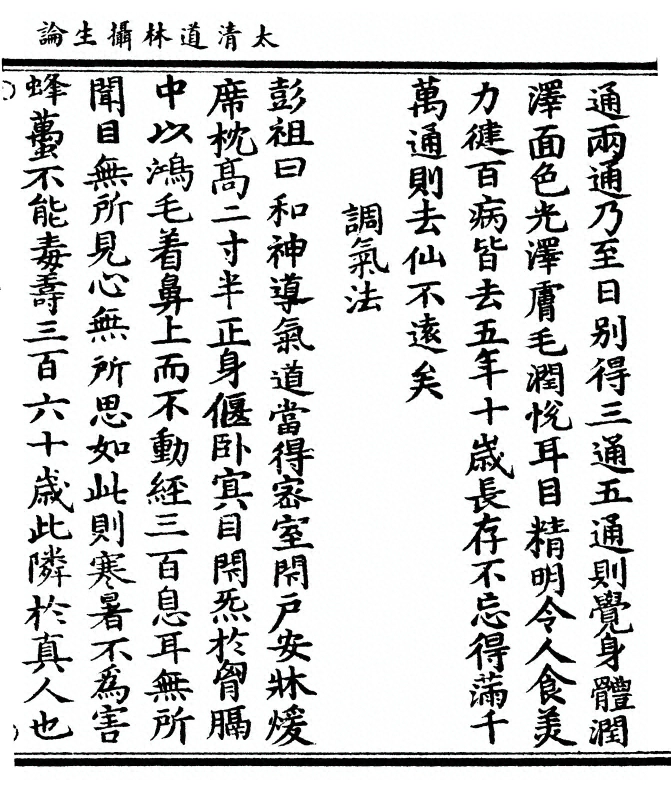 太清道林攝生論
通兩通乃至日别得三通五通則覺身體潤
澤面色光澤膚毛潤悅耳目精明令人食美
力健百病皆去五年十歲長存不忘得滿千
萬通則去仙不遠矣
調氣法
彭祖曰和神導氣道當得密室閇戶安牀煖
席枕高二寸半正身偃臥寘目閇炁於胷膈
中以鴻毛着鼻上而不動經三百息耳無所
聞目無所見心無所思如此則寒暑不爲害
蜂蠆不能毒壽三百六十歲此隣於真人也